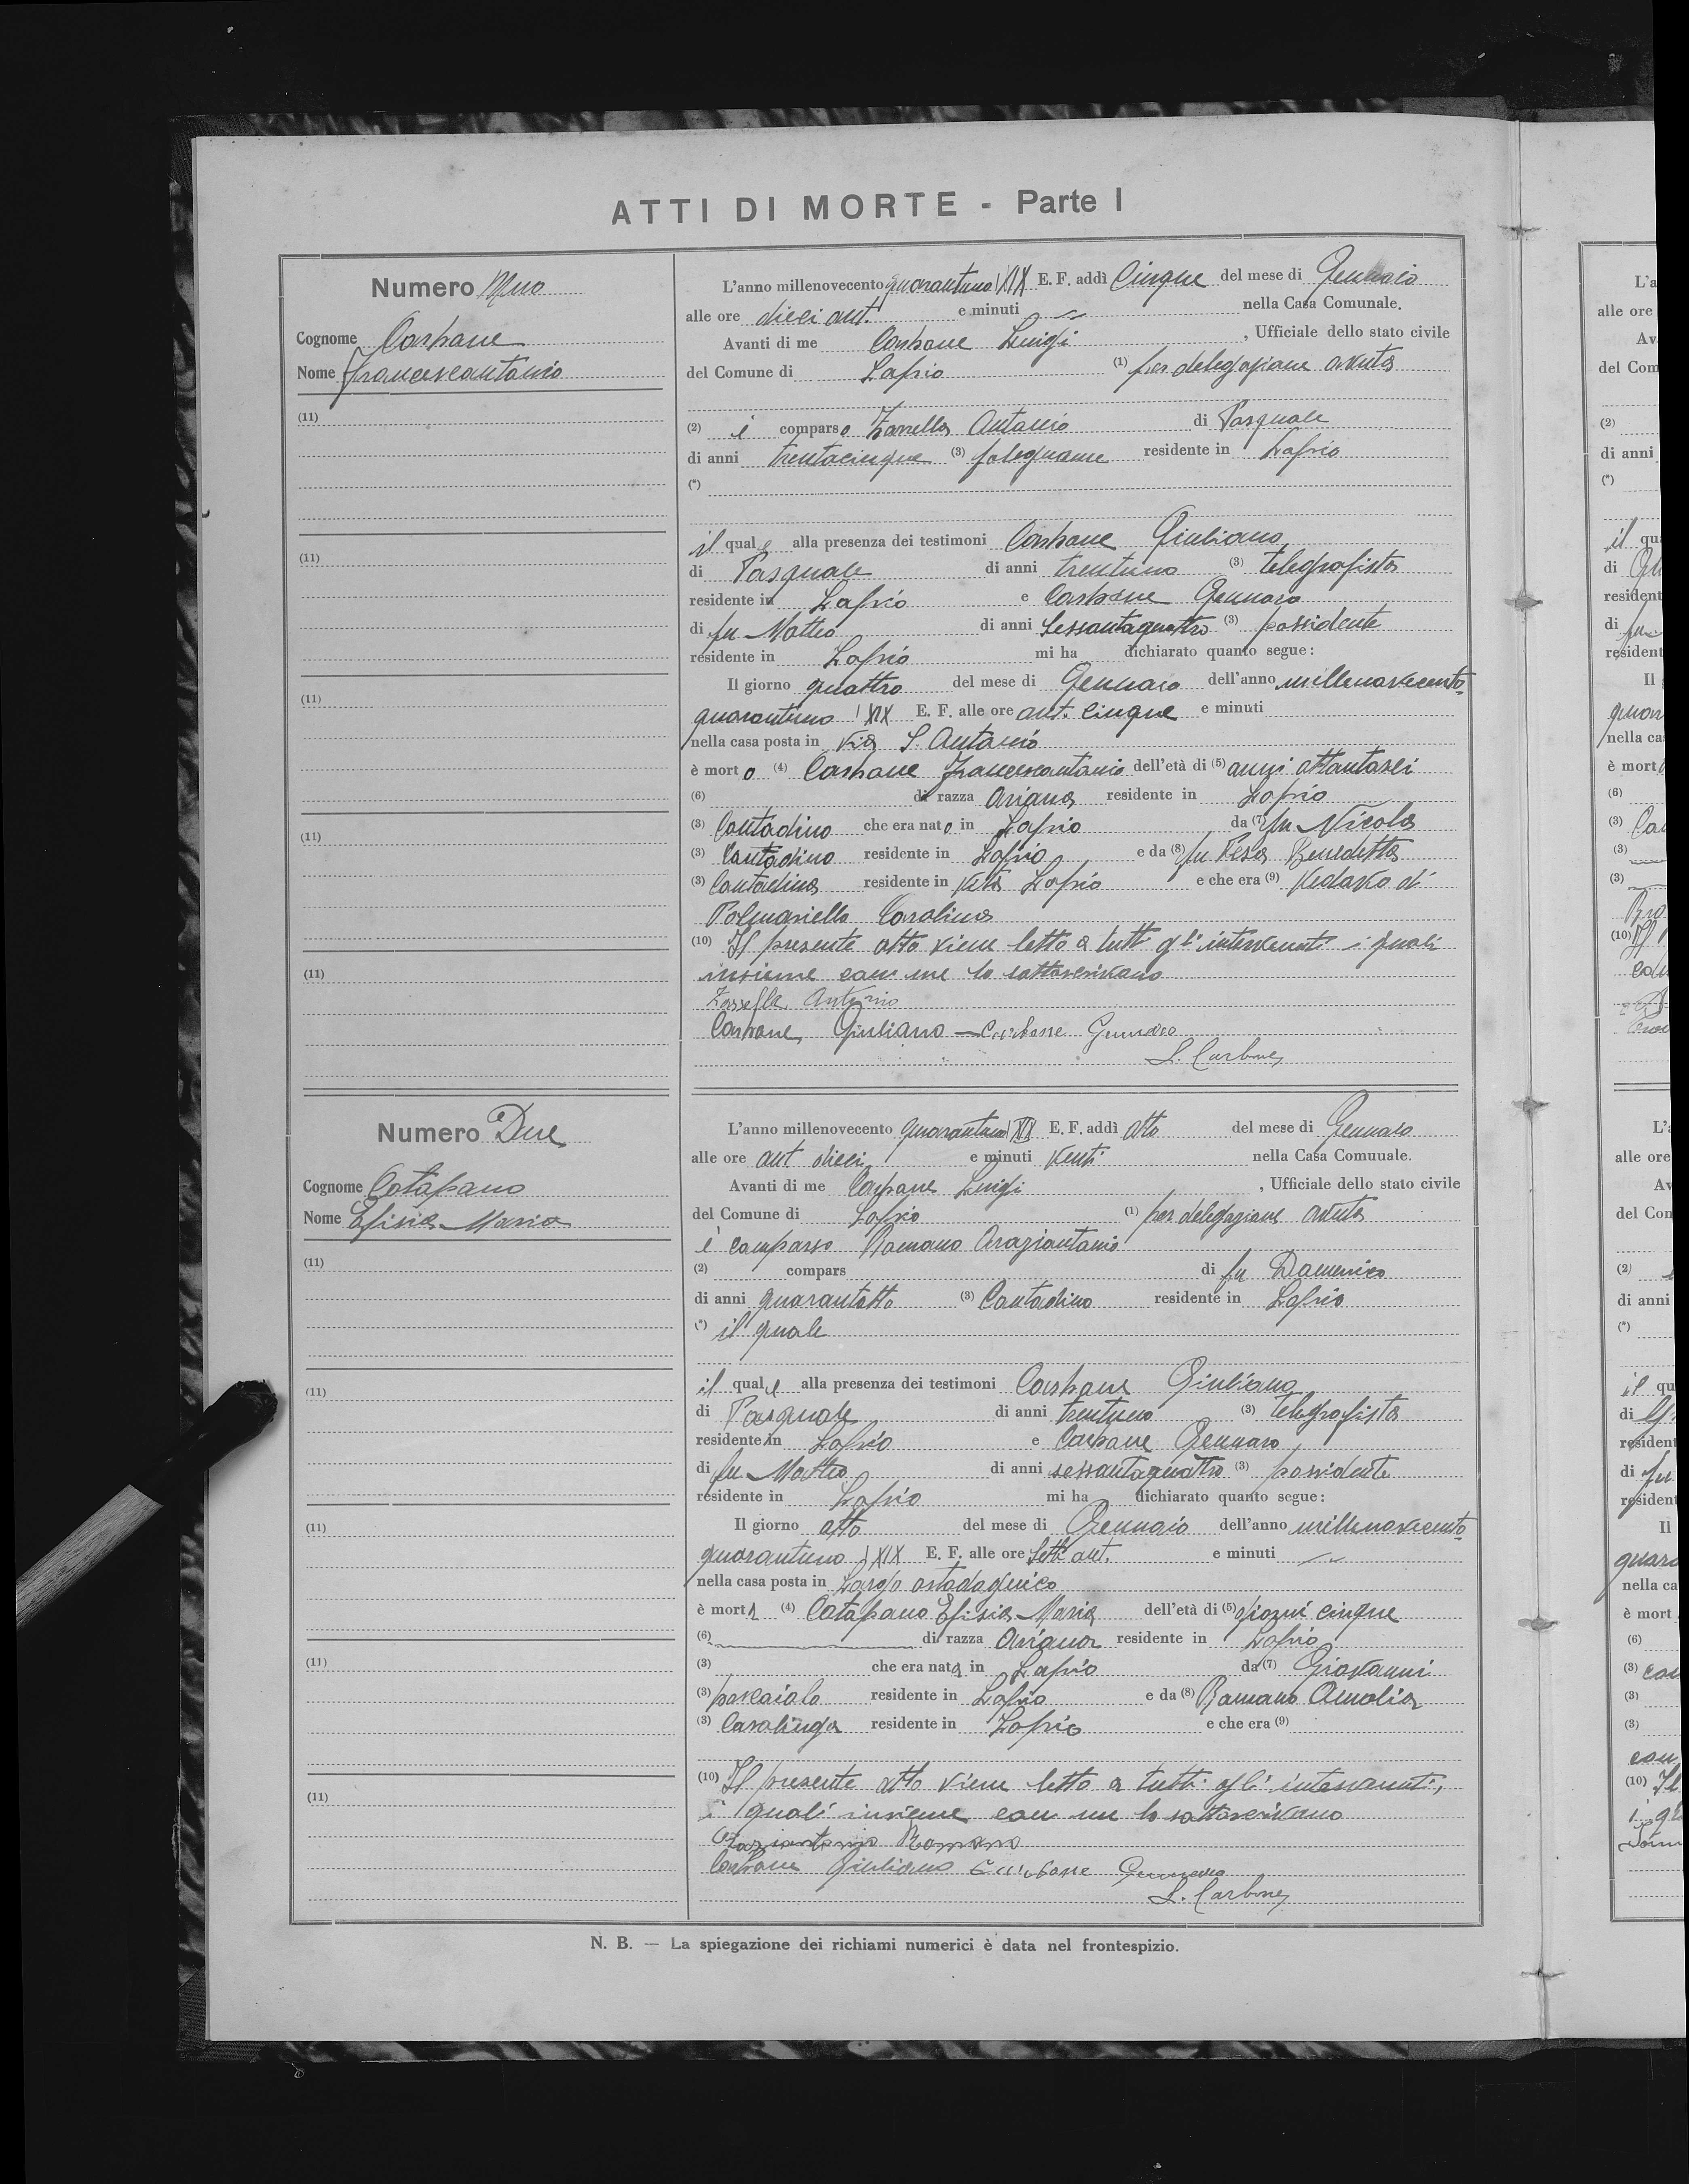 ATTI DI MORTE - Parte I
Numero Uno
Cognome Carbone
Nome Francescantonio
(11)
(11)
(11)
(11)
(11)
L'anno millenovecento quarantuno XIX E. F. addì Cinque del mese di Gennaio
alle ore dieci ant. e minuti nella Casa Comunale.
Avanti di me Carbone Luigi , Ufficiale dello stato civile
del Comune di Lapio (1) per delegazione avuta
(2) è comparso Zarrella Antonio di Pasquale
di anni trentacinque (3) falegname residente in Lapio
(*)
il quale alla presenza dei testimoni Carbone Giuliano
di Pasquale di anni trentuno (3) telegrafista
residente in Lapio e Carbone Gennaro
di fu Matteo di anni sessantaquattro (3) possidente
residente in Lapio mi ha dichiarato quanto segue:
Il giorno quattro del mese di Gennaio dell'anno millenovecento
quarantuno XIX E. F. alle ore ant. cinque e minuti
nella casa posta in via S. Antonio
è morto (4) Carbone Francescantonio dell'età di (5) anni ottantasei
(6) di razza Ariana residente in Lapio
(3) Contadino che era nato in Lapio da (7) fu Nicola
(3) Contadino residente in Lapio e da (8) fu Pesa Benedetta
(3) Contadina residente in vita Lapio e che era (9) vedovo di
Carolina
(10) Il presente atto viene letto a tutti gl'intervenuti i quali
insieme con me lo sottoscrivono
Zarrella Antonio
Carbone Giuliano - Carbone Gennaro
L. Carbone
Numero Due
Cognome Catapano
Nome Efisia Maria
(11)
(11)
(11)
(11)
(11)
L'anno millenovecento quarantuno XIX E. F. addì otto del mese di Gennaio
alle ore ant dieci e minuti venti nella Casa Comuuale.
Avanti di me Carbone Luigi , Ufficiale dello stato civile
del Comune di Lapio (1) per delegazione avuta
è comparso Romano Oraziantonio
(2) compars di fu Domenico
di anni quarantotto (3) Contadino residente in Lapio
(*) il quale
il quale alla presenza dei testimoni Carbone Giuliano
di Pasquale di anni trentuno (3) telegrafista
residente in Lapio e Carbone Gennaro
di fu Matteo di anni sessantaquattro (3) possidente
residente in Lapio mi ha dichiarato quanto segue:
Il giorno otto del mese di Gennaio dell'anno millenovecento
quarantuno XIX E. F. alle ore sette ant. e minuti
nella casa posta in Largo
è morta (4) Catapano Efisia Maria dell'età di (5) giorni cinque
(6) di razza Ariana residente in Lapio
(3) che era nata in Lapio da (7) Giovanni
(3) boscaiolo residente in Lapio e da (8) Romano Amalia
(3) Casalinga residente in Lapio e che era (9)
(10) Il presente atto viene letto a tutti gli intervenuti,
i quali insieme con me lo sottoscrivono
Oraziantonio Romano
Carbone Giuliano Carbone Gennaro
L. Carbone
N. B. — La spiegazione dei richiami numerici è data nel frontespizio.